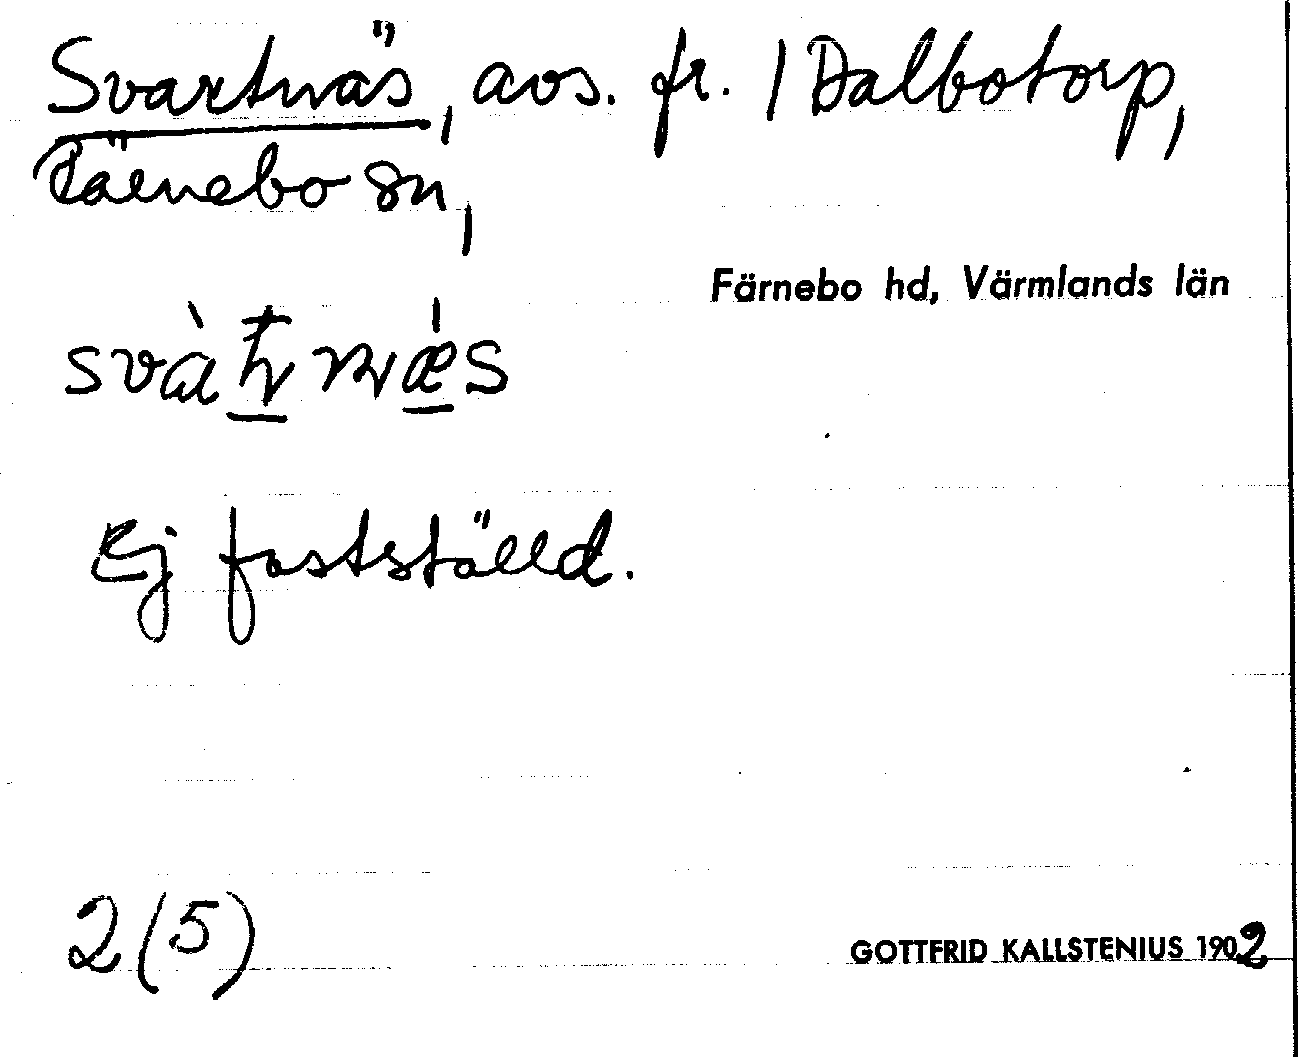 Svartnäs, avs. fr. 1 Dalbotorp,
Färnebo sn,
Färnebo hd, Värmlands län
Ej fastställd.
2(5)
GOTTFRID KALLSTENIUS 1902